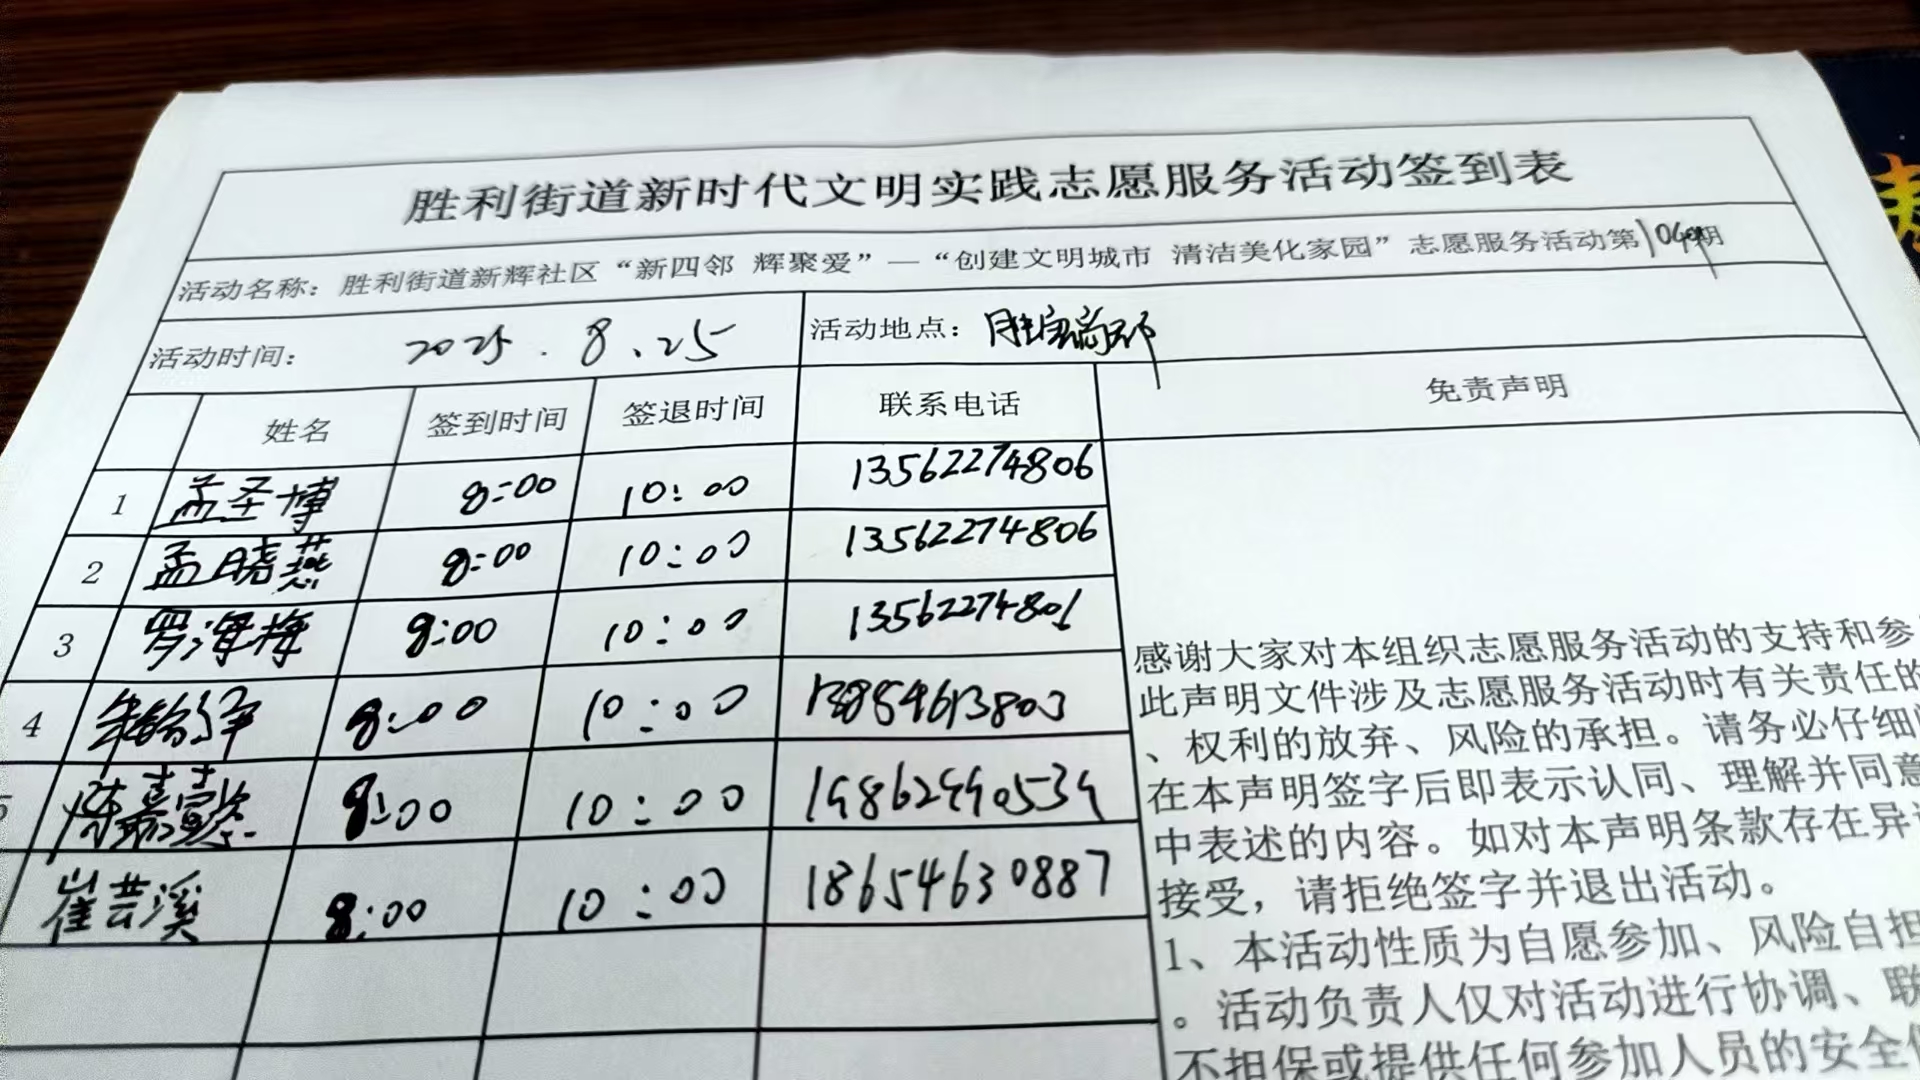 胜利街道新时代文明实践志愿服务活动签到表
活动名称：胜利街道新辉社区“新四邻 辉聚爱”—“创建文明城市 清洁美化家园”志愿服务活动第1049期
活动时间： 2025.8.25 活动地点：胜宏前郡
姓名 签到时间 签退时间 联系电话 免责声明
1 孟圣博 8:00 10:00 13562274806
2 孟晓燕 8:00 10:00 13562274806
3 罗海梅 8:00 10:00 13562274801
4 8:00 10:00 13854613803
5 陈嘉懿 8:00 10:00
崔芸溪 8:00 10:00 18654630887
感谢大家对本组织志愿服务活动的支持和参
此声明文件涉及志愿服务活动时有关责任的
、权利的放弃、风险的承担。请务必仔细阅
在本声明签字后即表示认同、理解并同意
中表述的内容。如对本声明条款存在异议
接受，请拒绝签字并退出活动。
1、本活动性质为自愿参加、风险自担
。活动负责人仅对活动进行协调、联
不担保或提供任何参加人员的安全